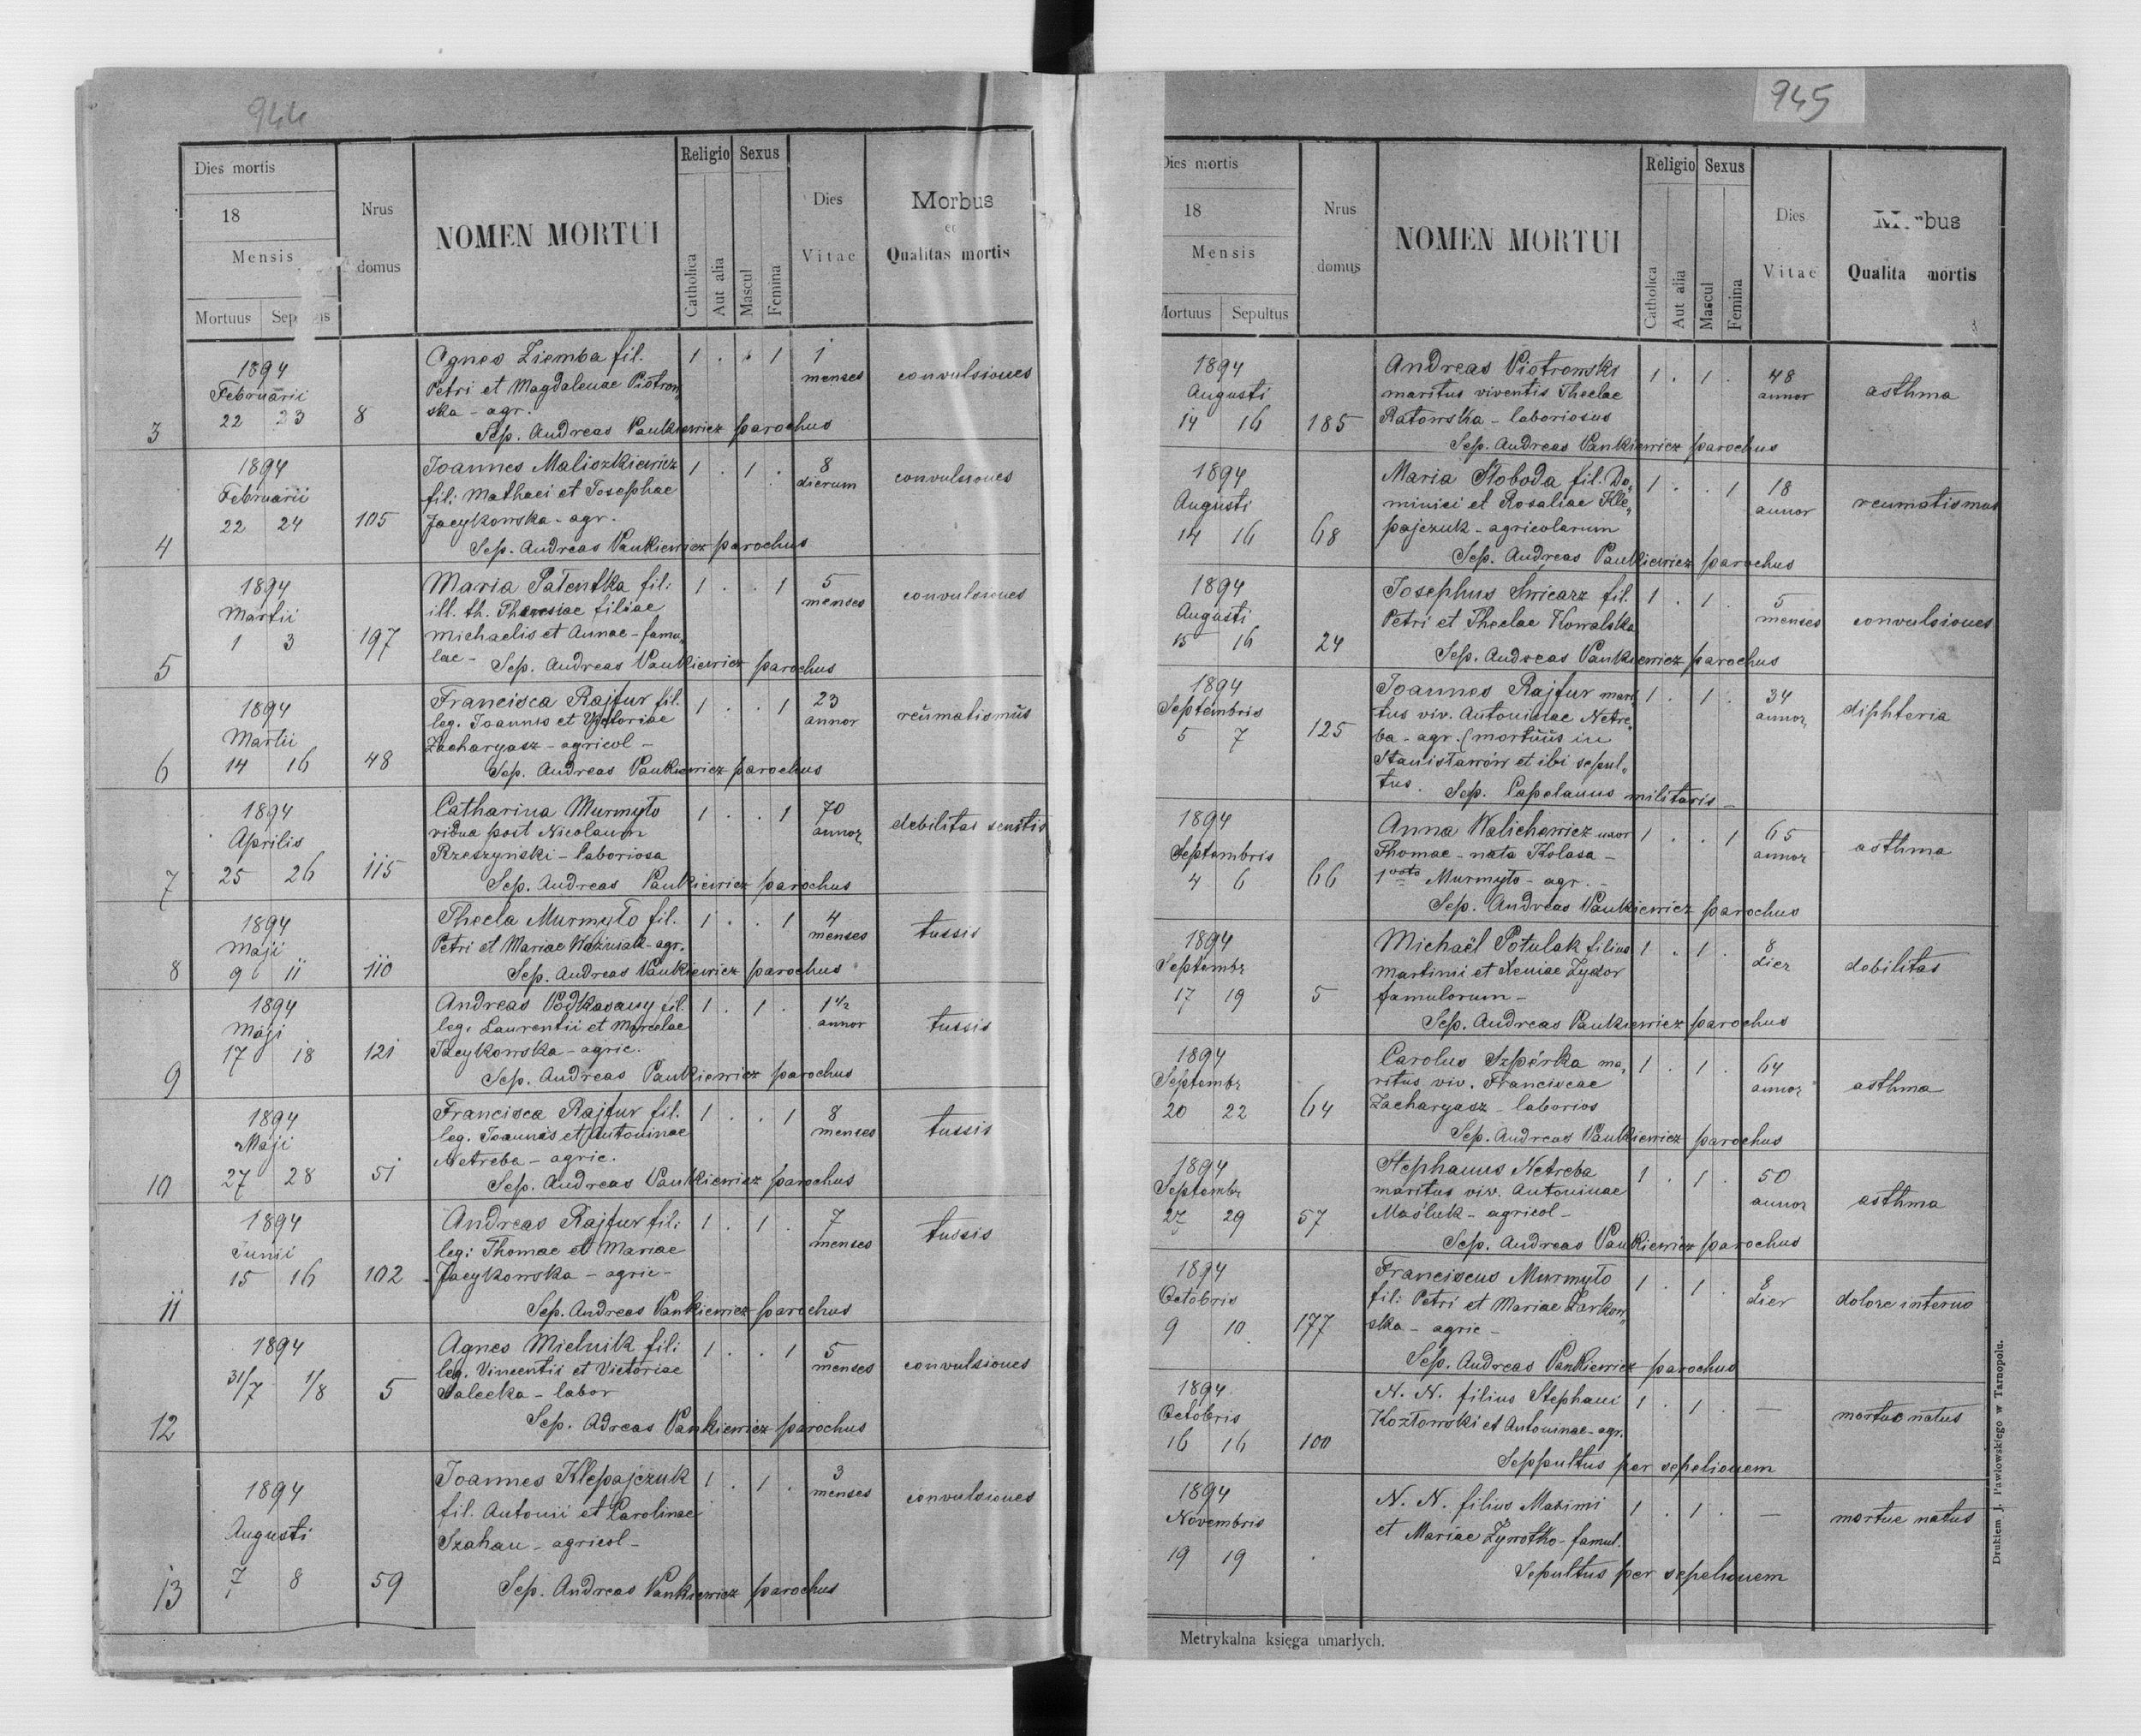 944
Dies mortis
18
Mensis
Mortuus
Nrus
domus
NOMEN MORTUI
Religio
Catholica
Aut alia
Sexus
Mascul
Femina
Dies
Vitae
Morbus
et
Qualitas mortis
3
1894
Februarii
22 23
8
Agnes Ziemba fil.
Petri et Magdalenae Piotrow„
ska - agr.
Sep. Andreas Pankiewicz parochus
1 . . 1
1
menses
convulsiones
4
1894
Februarii
22 24
105
Joannes Maliszkiewicz
fil: Mathaei et Josephae
Jacykowska - agr.
Sep. Andreas Pankiewicz parochus
1 . 1 .
8
dierum
convulsiones
5
1894
Martii
1 3
197
Maria Patentka fil:
ill. th. Theresiae filiae
Michaelis et Annae - famu„
lae - Sep. Andreas Pankiewicz parochus
1 . . 1
5
menses
convulsiones
6
1894
Martii
14 16
48
Francisca Rajfur fil.
leg. Joannis et Victoriae
Zacharyasz - agricol -
Sep. Andreas Pankiewicz parochus
1 . . 1
23
annor
reumatismus
7
1894
Aprilis
25 26
115
Catharina Murmyło
vidua post Nicolaum
Rzeszyński - laboriosa
Sep. Andreas Pankiewicz parochus
1 . . 1
70
annor
debilitas
8
1894
Maji
9 11
110
Thecla Murmyło fil.
Petri et Mariae Woźniak - agr.
Sep. Andreas Pankiewicz parochus
1 . . 1
4
menses
tussis
9
1894
Maji
17 18
121
Andreas Podkasany fil.
leg. Laurentii et Marcelae
Jacykowska - agric.
Sep. Andreas Pankiewicz parochus
1 . 1 .
1 1/2
annor
tussis
10
1894
Maji
27 28
51
Francisca Rajfur fil.
leg. Joannis et Antoninae
Netreba - agric.
Sep. Andreas Pankiewicz parochus
1 . . 1
8
menses
tussis
11
1894
Junii
15 16
102
Andreas Rajfur fil:
leg: Thomae et Mariae
Jacykowska - agric -
Sep. Andreas Pankiewicz parochus
1 . 1 .
7
menses
tussis
12
1894
31/7 1/8
5
Agnes Mielnik fil:
leg. Vincentii et Victoriae
Salecka - labor
Sep. Adreas Pankiewicz parochus
1 . . 1
5
menses
convulsiones
13
1894
Augusti
7 8
59
Joannes Klepajczuk
fil. Antonii et Carolinae
Szahan - agricol -
Sep. Andreas Pankiewicz parochus
1 . 1 .
3
menses
convulsiones
945
Dies mortis
18
Mensis
Mortuus Sepultus
Nrus
domus
NOMEN MORTUI
Religio
Catholica
Aut alia
Sexus
Mascul
Femina
Dies
Vitae
Qualita mortis
1894
Augusti
14 16
185
Andreas Piotrowski
maritus viventis Theclae
Ratowska - laboriosus
Sep. Andreas Pankiewicz parochus
1 . 1 .
48
annor
asthma
1894
Augusti
14 16
68
Maria Słoboda fil. Do„
minici et Rosaliae Kle„
pajczuk - agricolarum
Sep. Andreas Pankiewicz parochus
1 . . 1
18
annor
reumatismus
1894
Augusti
15 16
24
Josephus Swicarz fil.
Petri et Theclae Kowalska
Sep. Andreas Pankiewicz parochus
1 . 1 .
5
menses
convulsiones
1894
Septembris
5 7
125
Joannes Rajfur mari„
tus viv. Antoninae Netre„
ba - agr. (mortuus in
Stanisławów et ibi sepul„
tus. Sep. Capelanus militaris -
1 . 1 .
34
annor
diphteria
1894
Septembris
4 6
66
Anna Walichewicz uxor
Thomae - nata Kolasa -
1 voto Murmyło - agr. -
Sep. Andreas Pankiewicz parochus
1 . . 1
65
annor
asthma
1894
Septembr
17 19
5
Michaël Potulak filius
Martinii et Xeniae Zydor
famulorum -
Sep. Andreas Pankiewicz parochus
1 . 1 .
8
dier
debilitas
1894
Septembr
20 22
64
Carolus Szpérka ma„
ritus viv. Franciscae
Zacharyasz - laborios
Sep. Andreas Pankiewicz parochus
1 . 1 .
64
annor
asthma
1894
Septembr
27 29
57
Stephanus Netreba
maritus viv. Antoninae
Maśluk - agricol -
Sep. Andreas Pankiewicz parochus
1 . 1 .
50
annor
asthma
1894
Octobris
9 10
177
Franciscus Murmyło
fil: Petri et Mariae Zarkow„
ska - agric -
Sep. Andreas Pankiewicz parochus
1 . 1 .
8
dier
dolore interno
1894
Octobris
16 16
100
N. N. filius Stephani
Kozłowski et Antoninae - agr.
Seppultus per sepelionem
1 . 1 .
—
mortuo natus
1894
Novembris
19 19
.
N. N. filius Maximi
et Mariae Zywotko - famul.
Sepultus per sepelionem
1 . 1 .
—
mortue natus
Metrykalna księga umarłych.
Drukiem J. Pawłowskiego w Tarnopolu.